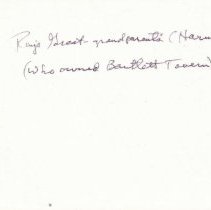 Ray's Great-grandparents (Harm
(Who owned Bartlett Tavern)